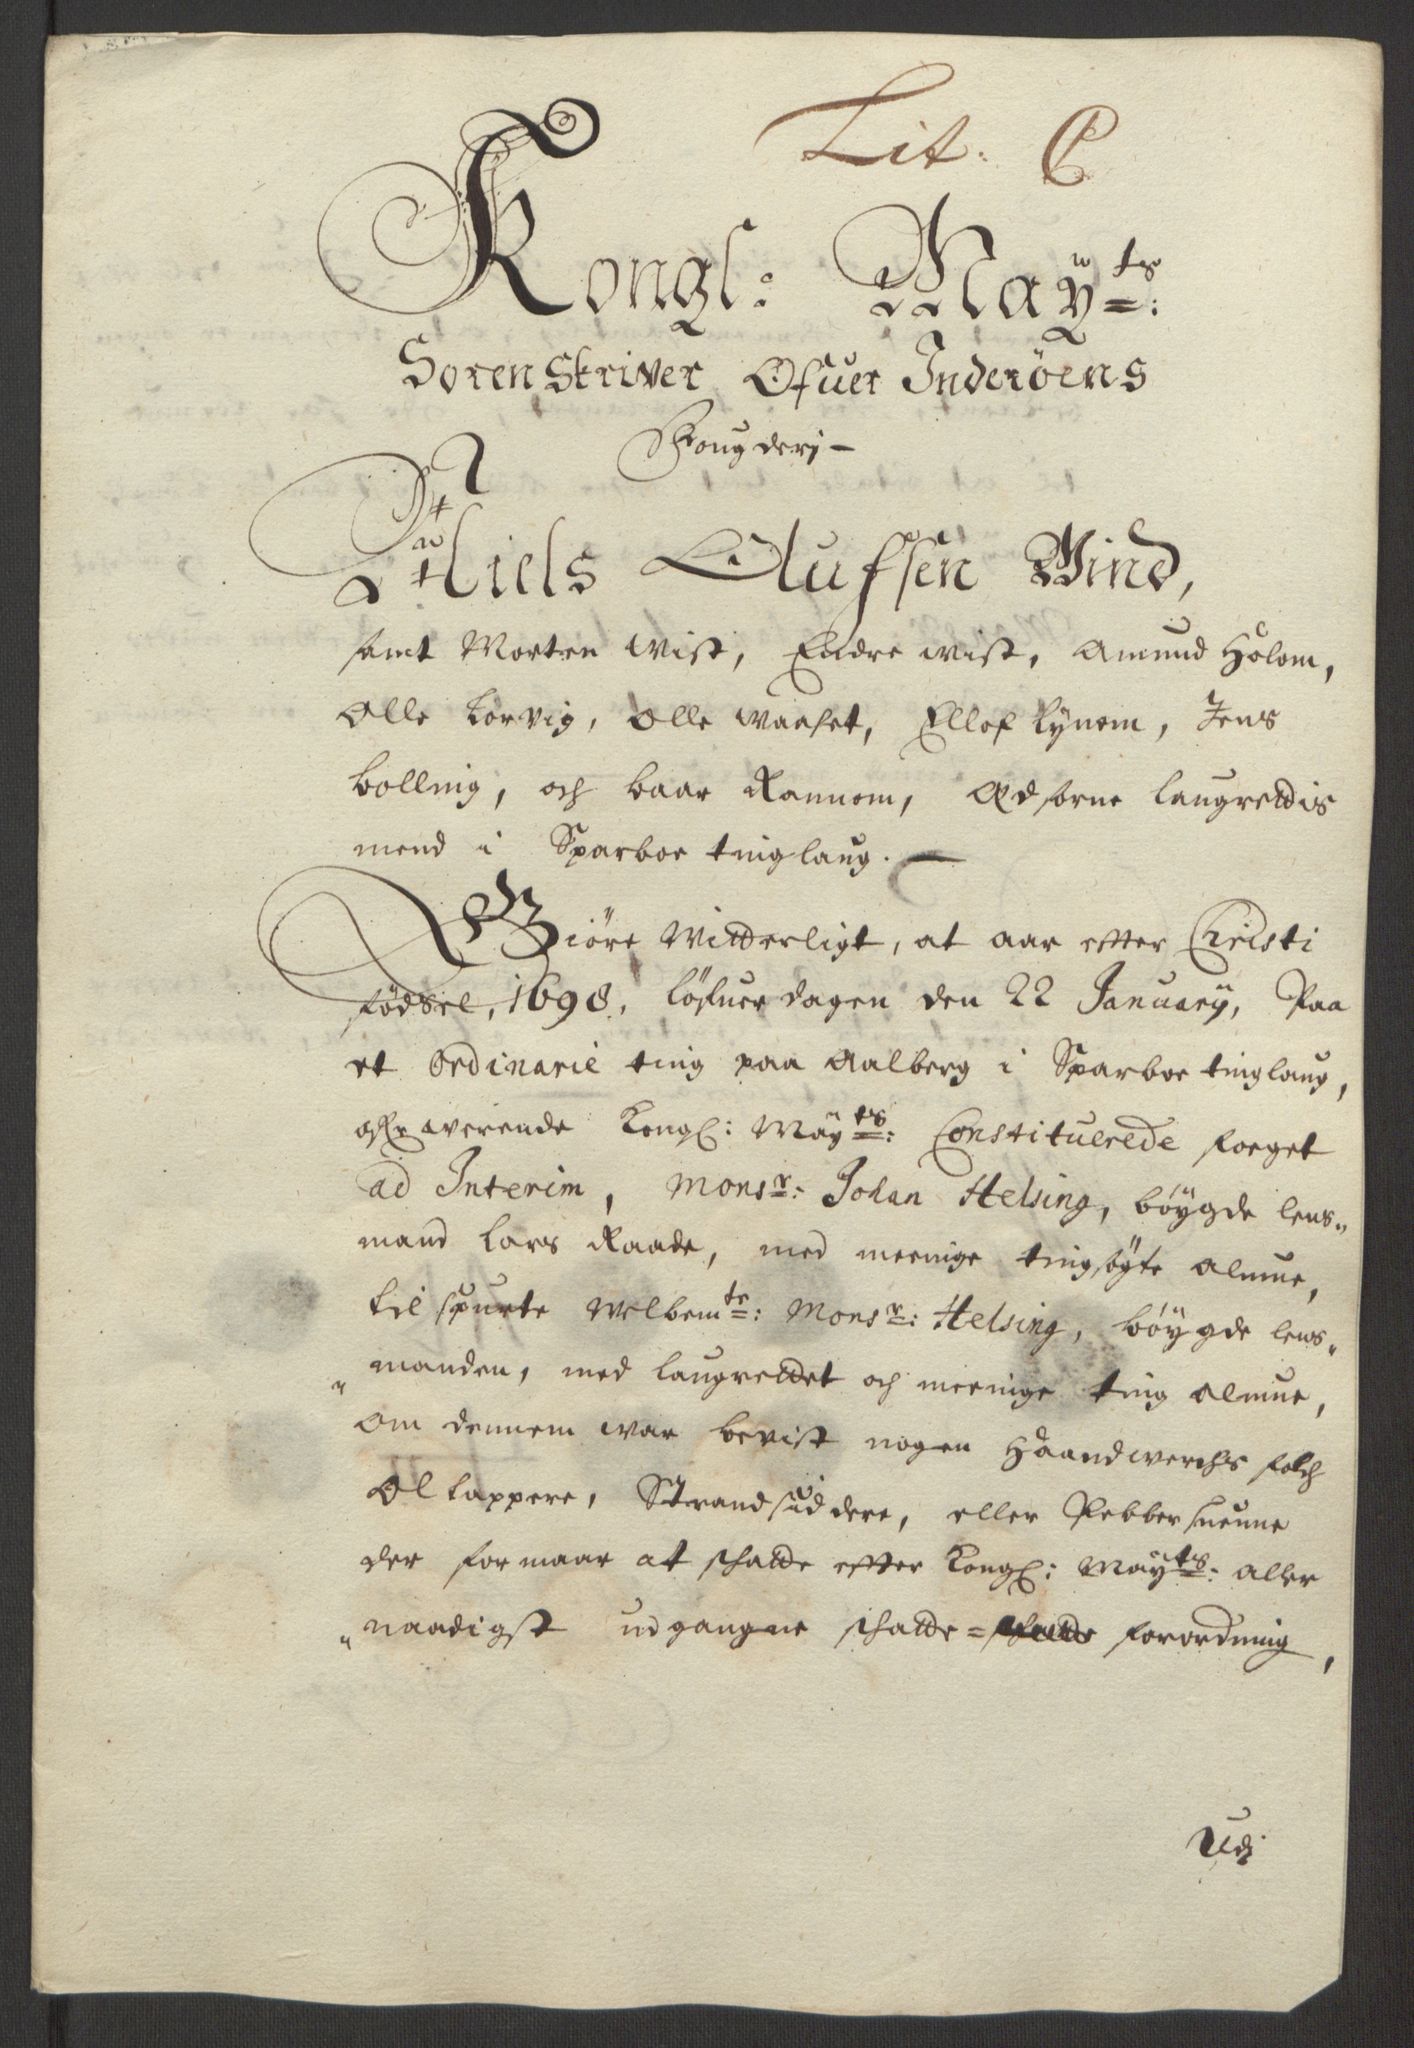 Lit: C
Kongl: Maÿts:
Soren Skriver Ofuer Inderöens
Fougderj
Niels Olufsen Wind,
samt Morten Wist, Endre Wist, Amund Holom,
Olle Korvig, Olle Waaset, Ellof Lÿnom, Jens
bolling, och baar Rannom, Ædsorne laugrettis
mend i Sparboe tinglaug.
Giöre Witterligt, at aar effter Christi
födsel, 1698, löfuerdagen den 22 Januarÿ, Paa
et Ordinarie ting paa Aalberg i Sparboe tinglaug,
ofr werende Kongl: Maÿts: Constituerede foeget
ad Interim, Monsr: Johan Helsing, böÿgde lens„
mand Lars Raade, med meenige tingsögte almue,
tilspurte Welbemte: Monsr: Helsing, böÿgde lens„
„manden, med laugrettet och meenige ting almue,
om dennem war bevist nogen Haandwerchs folch
Öltappere, Strandsiddere, eller Pebbersuenne
der formaar at schatte effter Kongl: Maÿts: aller
„naadigst udgangne schatte= forordning,
Udj